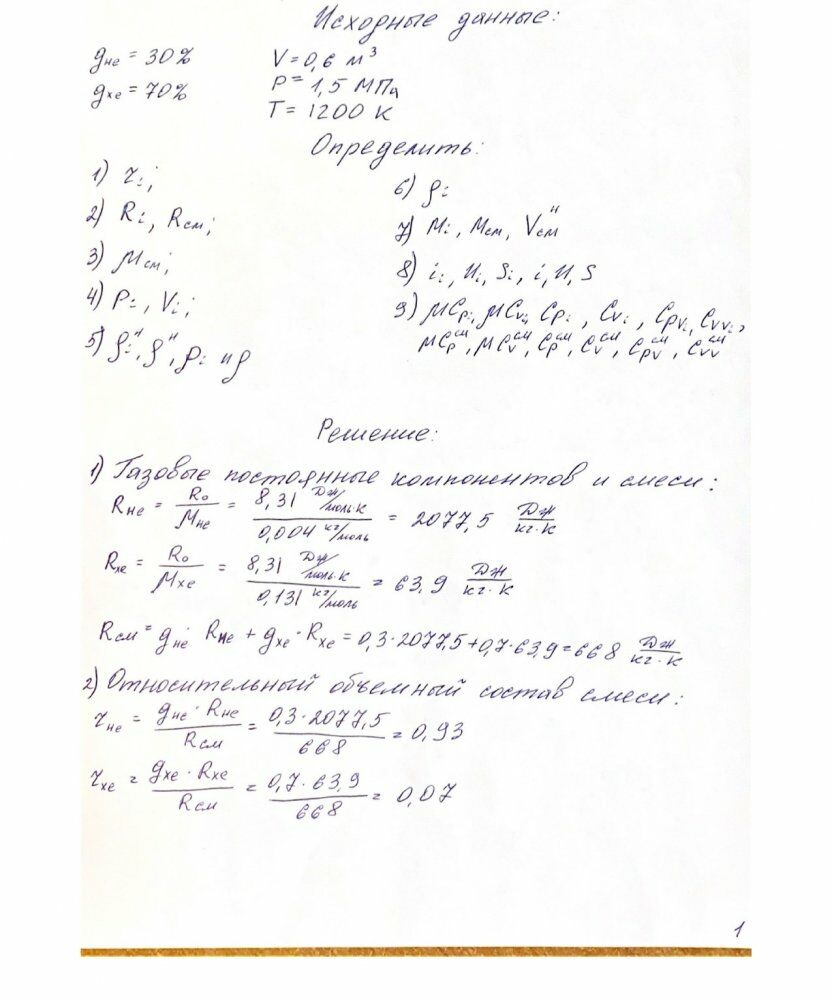 Исходные данные:
gHe = 30%
gXe = 70%
V = 0,6 м³
P = 1,5 МПа
T = 1200 К
Определить:
1) ri;
2) Ri, Rсм;
3) μсм;
4) Pi, Vi;
5) ρiᴴ, ρᴴ, ρi и ρ
6) ρi
7) Mi, Mсм, Vсмᴴ
8) ii, ui, si, i, u, s
9) μCpi, μCvi, Cpi, Cvi, Cpvi, Cvvi,
μCpсм, μCvсм, Cpсм, Cvсм, Cpvсм, Cvvсм
Решение:
1) Газовые постоянные компонентов и смеси:
RHe = R₀/μHe = 8,31 Дж/моль·К / 0,004 кг/моль = 2077,5 Дж/кг·К
RXe = R₀/μXe = 8,31 Дж/моль·К / 0,131 кг/моль = 63,9 Дж/кг·К
Rсм = gHe · RHe + gXe · RXe = 0,3·2077,5+0,7·63,9=668 Дж/кг·К
2) Относительный объемный состав смеси:
rHe = gHe · RHe / Rсм = 0,3·2077,5 / 668 = 0,93
rXe = gXe · RXe / Rсм = 0,7·63,9 / 668 = 0,07
1